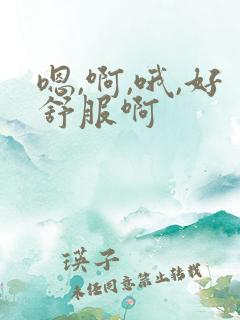 嗯,啊,哦,好
舒服啊
瑛子
未经同意禁止转载